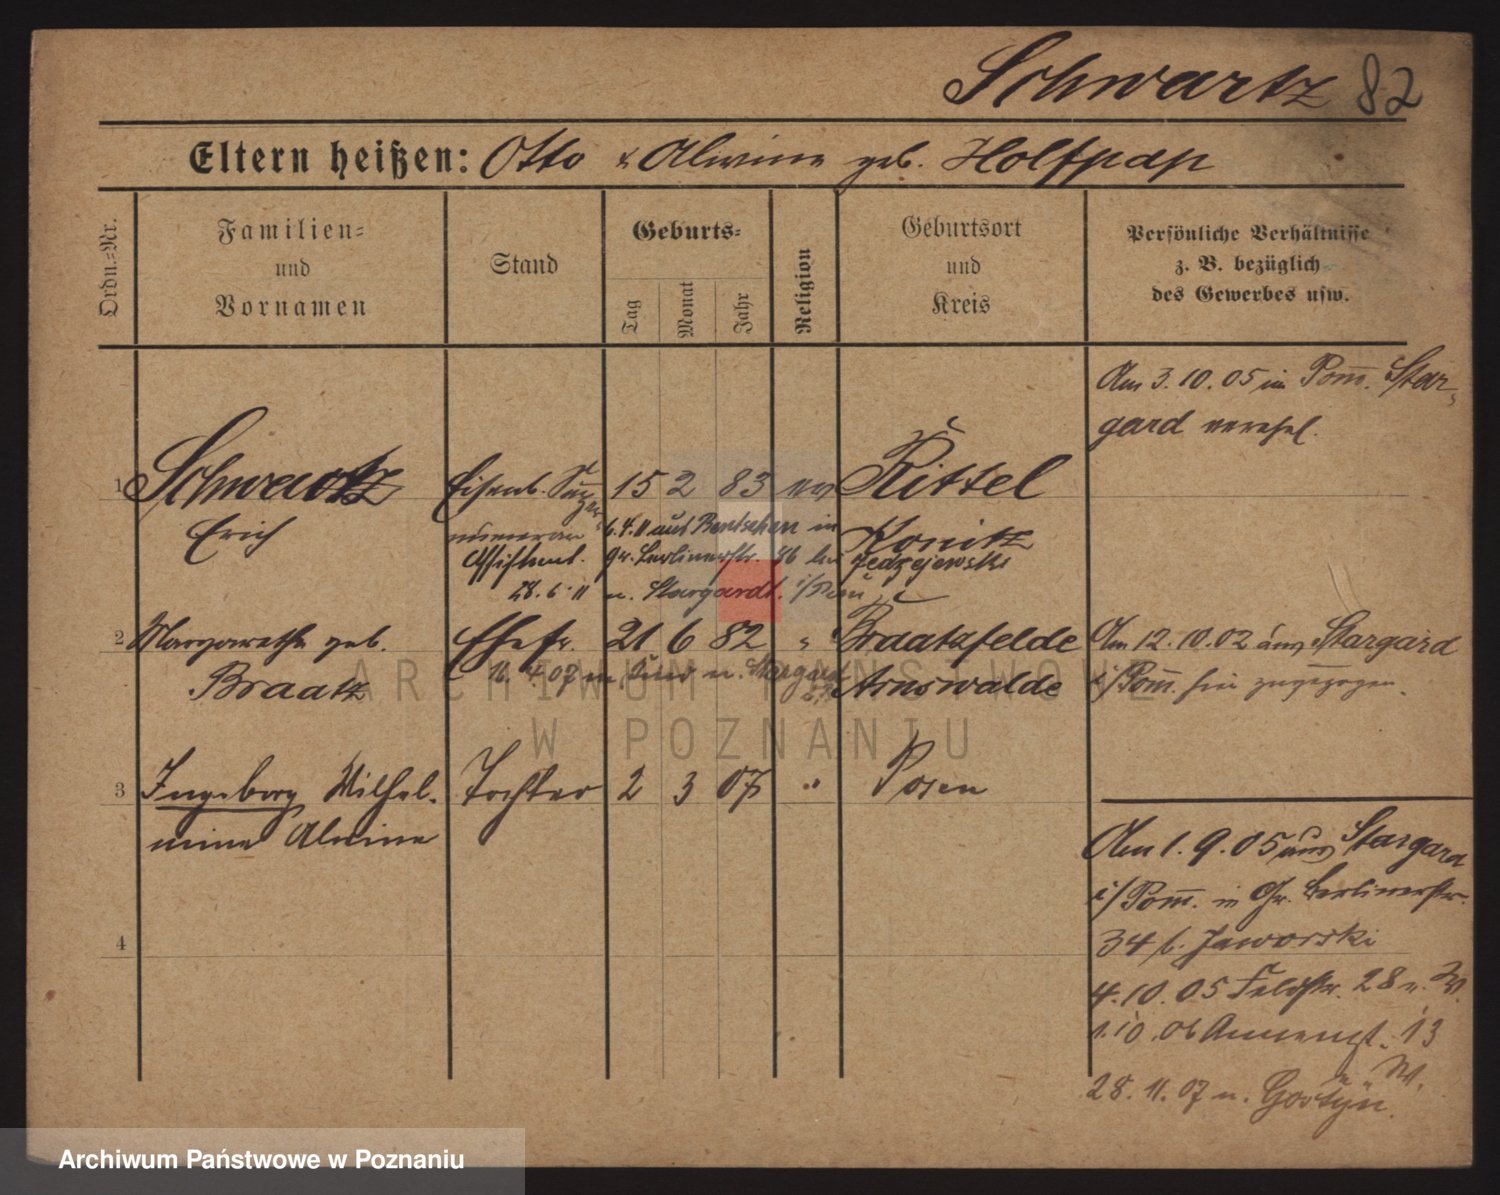 Schwartz 82
Eltern heißen: Otto & Alwine geb. Holtfpap
Ordn.=Nr.
Familien=
und
Vornamen
Stand
Geburts=
Tag
Monat
Jahr
Religion
Geburtsort
und
Kreis
Persönliche Verhältnisse
z. B. bezüglich
des Gewerbes usw.
Am 3.10.05 in Pom. Star-
gard verehel.
1 Schwartz Eisenb. 15 2 83 ev Kittel
Erich Konitz
6.4.11 aus Bentschen in
Assistent. Gr. Berlinerstr. 86 bei Jedzejewski
28.6.11 n. Stargardt. i/Pom
2 Margarethe geb. Ehefr. 21 6 82 " Braatzfelde
Braatz Arnswalde
16.4.07 n. Stargard
Am 12.10.02 aus Stargard
i/Pom. hier zugezogen.
3 Ingeborg Wilhel- Tochter 2 3 07 " Posen
mine Alwine
4
Am 1.9.05 aus Stargard
i/Pom. in Gr. Berlinerstr.
34 b. Jaworski
4.10.05 Feldstr. 28 n. W.
1.10.06 Annengst. 13
n. W.
28.11.07 n. Gostyn.
ARCHIWUM PAŃSTWOWE
W POZNANIU
Archiwum Państwowe w Poznaniu